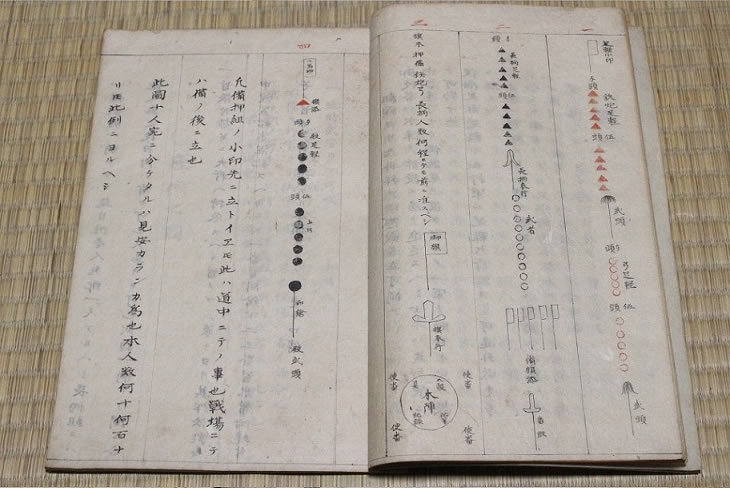 一
足軽小印
手頭
鉄炮足軽
伍頭
武頭
手頭
弓足軽
伍頭
武頭
二
手頭
長柄足軽
伍頭
長柄奉行
武者
備旗添
番頭
三
旗本押備鉄炮弓長柄人数何程ニテモ前ニ准スヘシ
御旗
旗奉行
使番
使番
本陣
使番
使番
四
小印
旗添
手頭
殿足軽
伍頭
殿武頭
凡備押組ノ小印先ニ立トイヱトモ此ハ道中ニテノ事也戦場ニテ
ハ備ノ後ニ立也
此圖十人宛ニ分ケタルハ見安カランカ為也本人数何十何百ナ
リトモ此例ニヨルヘシ